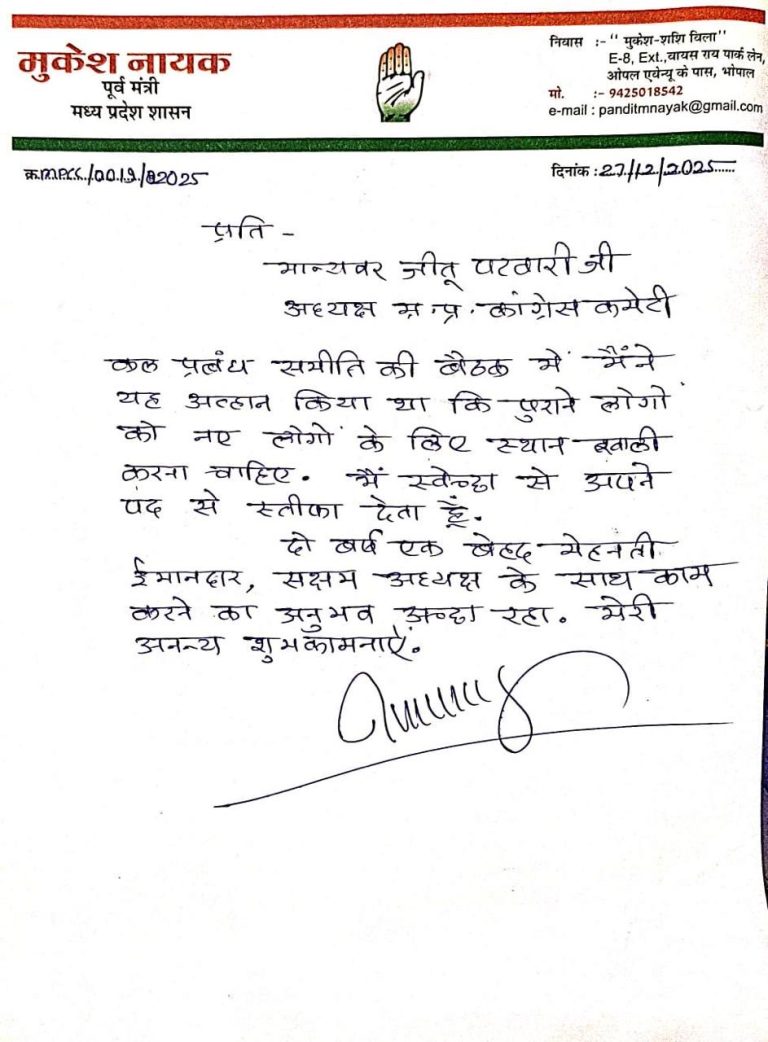 मुकेश नायक
पूर्व मंत्री
मध्य प्रदेश शासन
निवास :- " मुकेश-शशि विला"
E-8, Ext.,वायस राय पार्क लेन,
ओपल एवेन्यू के पास, भोपाल
मो. :- 9425018542
e-mail : panditmnayak@gmail.com
क्र.M.P.C.C./0019/2025
दिनांक :27/12/2025......
प्रति -
मान्यवर जीतू पटवारी जी
अध्यक्ष म.प्र. कांग्रेस कमेटी
कल प्रबंध समीति की बैठक में मैंने
यह अव्हान किया था कि पुराने लोगों
को नए लोगों के लिए स्थान खाली
करना चाहिए. मैं स्वेच्छा से अपने
पद से स्तीफा देता हूँ.
दो बर्ष एक बेहद मेहनती
ईमानदार, सक्षम अध्यक्ष के साथ काम
करने का अनुभव अच्छा रहा. मेरी
अनन्य शुभकामनाऐं.